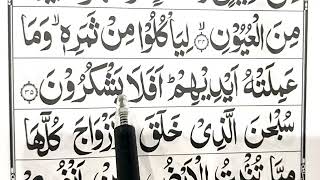 مِنَ الْعُيُوْنِ ۙ‏ ﴿۳۴﴾ لِيَاْكُلُوْا مِنْ ثَمَرِهٖ ۙ وَمَا
عَمِلَتْهُ اَيْدِيْهِمْ ؕ اَفَلَا يَشْكُرُوْنَ ﴿۳۵﴾
سُبْحٰنَ الَّذِىْ خَلَقَ الْاَزْوَاجَ كُلَّهَا
مِمَّا تُنْۢبِتُ الْاَرْضُ